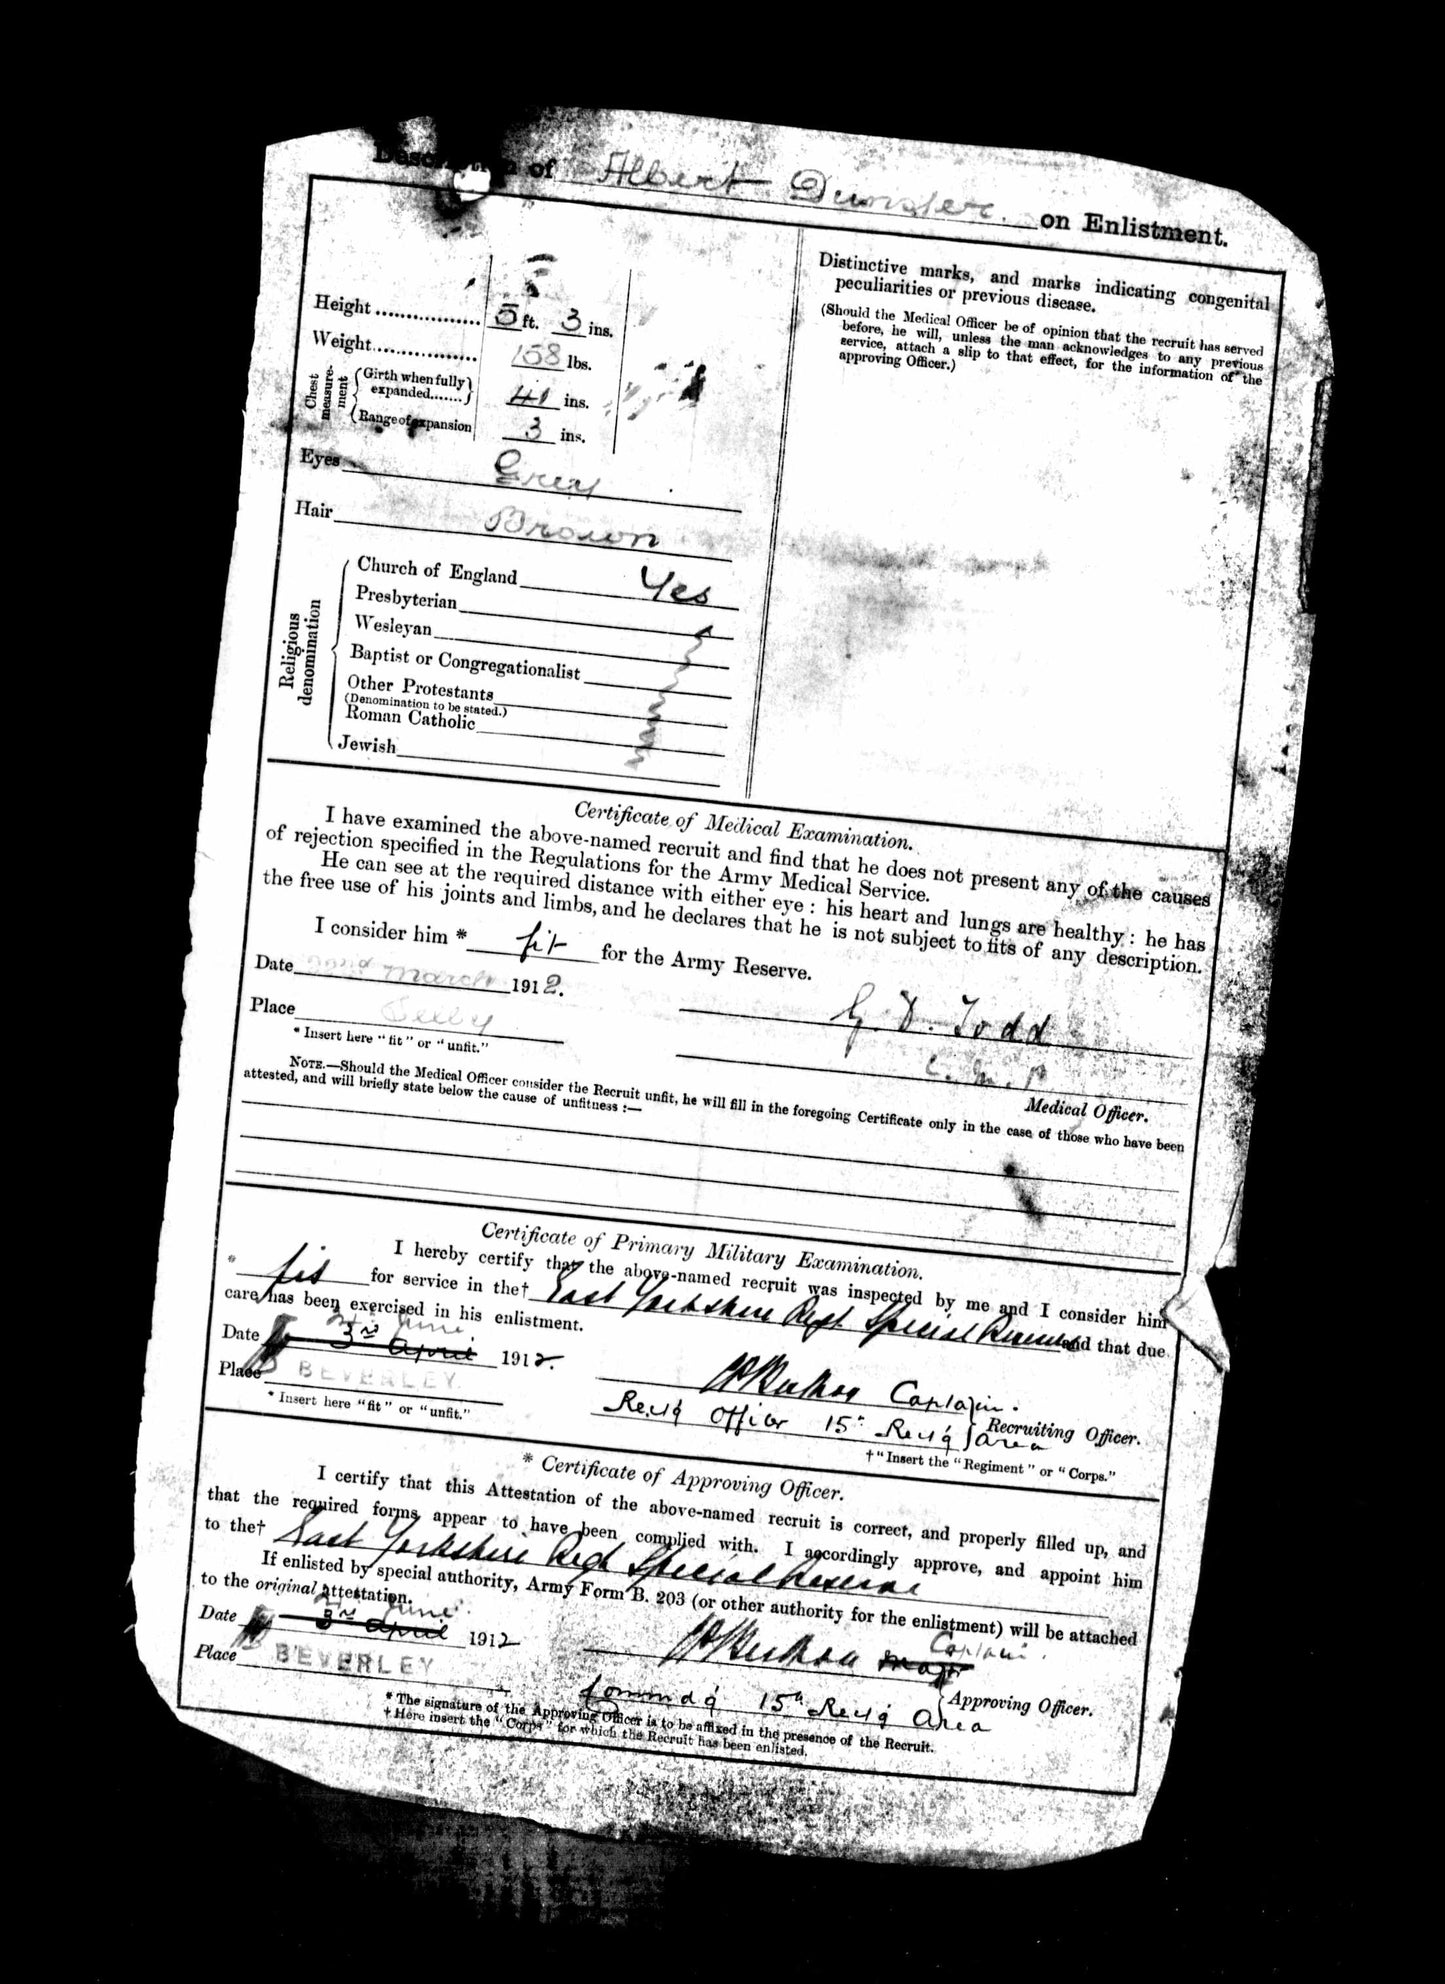 Description of Albert Dunster on Enlistment.
Height 5 ft. 3 ins.
Weight 158 lbs.
Chest measure-ment
Girth when fully expanded 41 ins.
Range of expansion 3 ins.
Eyes Grey
Hair Brown
Religious denomination
Church of England Yes
Presbyterian
Wesleyan
Baptist or Congregationalist
Other Protestants
(Denomination to be stated.)
Roman Catholic
Jewish
Distinctive marks, and marks indicating congenital
peculiarities or previous disease.
(Should the Medical Officer be of opinion that the recruit has served
before, he will, unless the man acknowledges to any previous
service, attach a slip to that effect, for the information of the
approving Officer.)
Certificate of Medical Examination.
I have examined the above-named recruit and find that he does not present any of the causes
of rejection specified in the Regulations for the Army Medical Service.
He can see at the required distance with either eye : his heart and lungs are healthy : he has
the free use of his joints and limbs, and he declares that he is not subject to fits of any description.
I consider him * fit for the Army Reserve.
Date 22nd March 1912.
G. D. Todd
Place Selby
C. M. P
* Insert here "fit" or "unfit."
Medical Officer.
NOTE.—Should the Medical Officer consider the Recruit unfit, he will fill in the foregoing Certificate only in the case of those who have been
attested, and will briefly state below the cause of unfitness :—
Certificate of Primary Military Examination.
I hereby certify that the above-named recruit was inspected by me and I consider him
* fit for service in the† East Yorkshire Regt Special Reserve and that due
care has been exercised in his enlistment.
June
Date 3rd April 1912.
Captain.
Place BEVERLEY.
Rectg Officer 15th Rectg Area
Recruiting Officer.
* Insert here "fit" or "unfit."
† "Insert the "Regiment" or "Corps."
* Certificate of Approving Officer.
I certify that this Attestation of the above-named recruit is correct, and properly filled up, and
that the required forms appear to have been complied with. I accordingly approve, and appoint him
to the† East Yorkshire Regt Special Reserve
If enlisted by special authority, Army Form B. 203 (or other authority for the enlistment) will be attached
to the original attestation.
June
Date 3rd April 1912
Captain.
Major
Place BEVERLEY
Approving Officer.
Commdg 15th Rectg Area
* The signature of the Approving Officer is to be affixed in the presence of the Recruit.
† Here insert the "Corps" for which the Recruit has been enlisted.